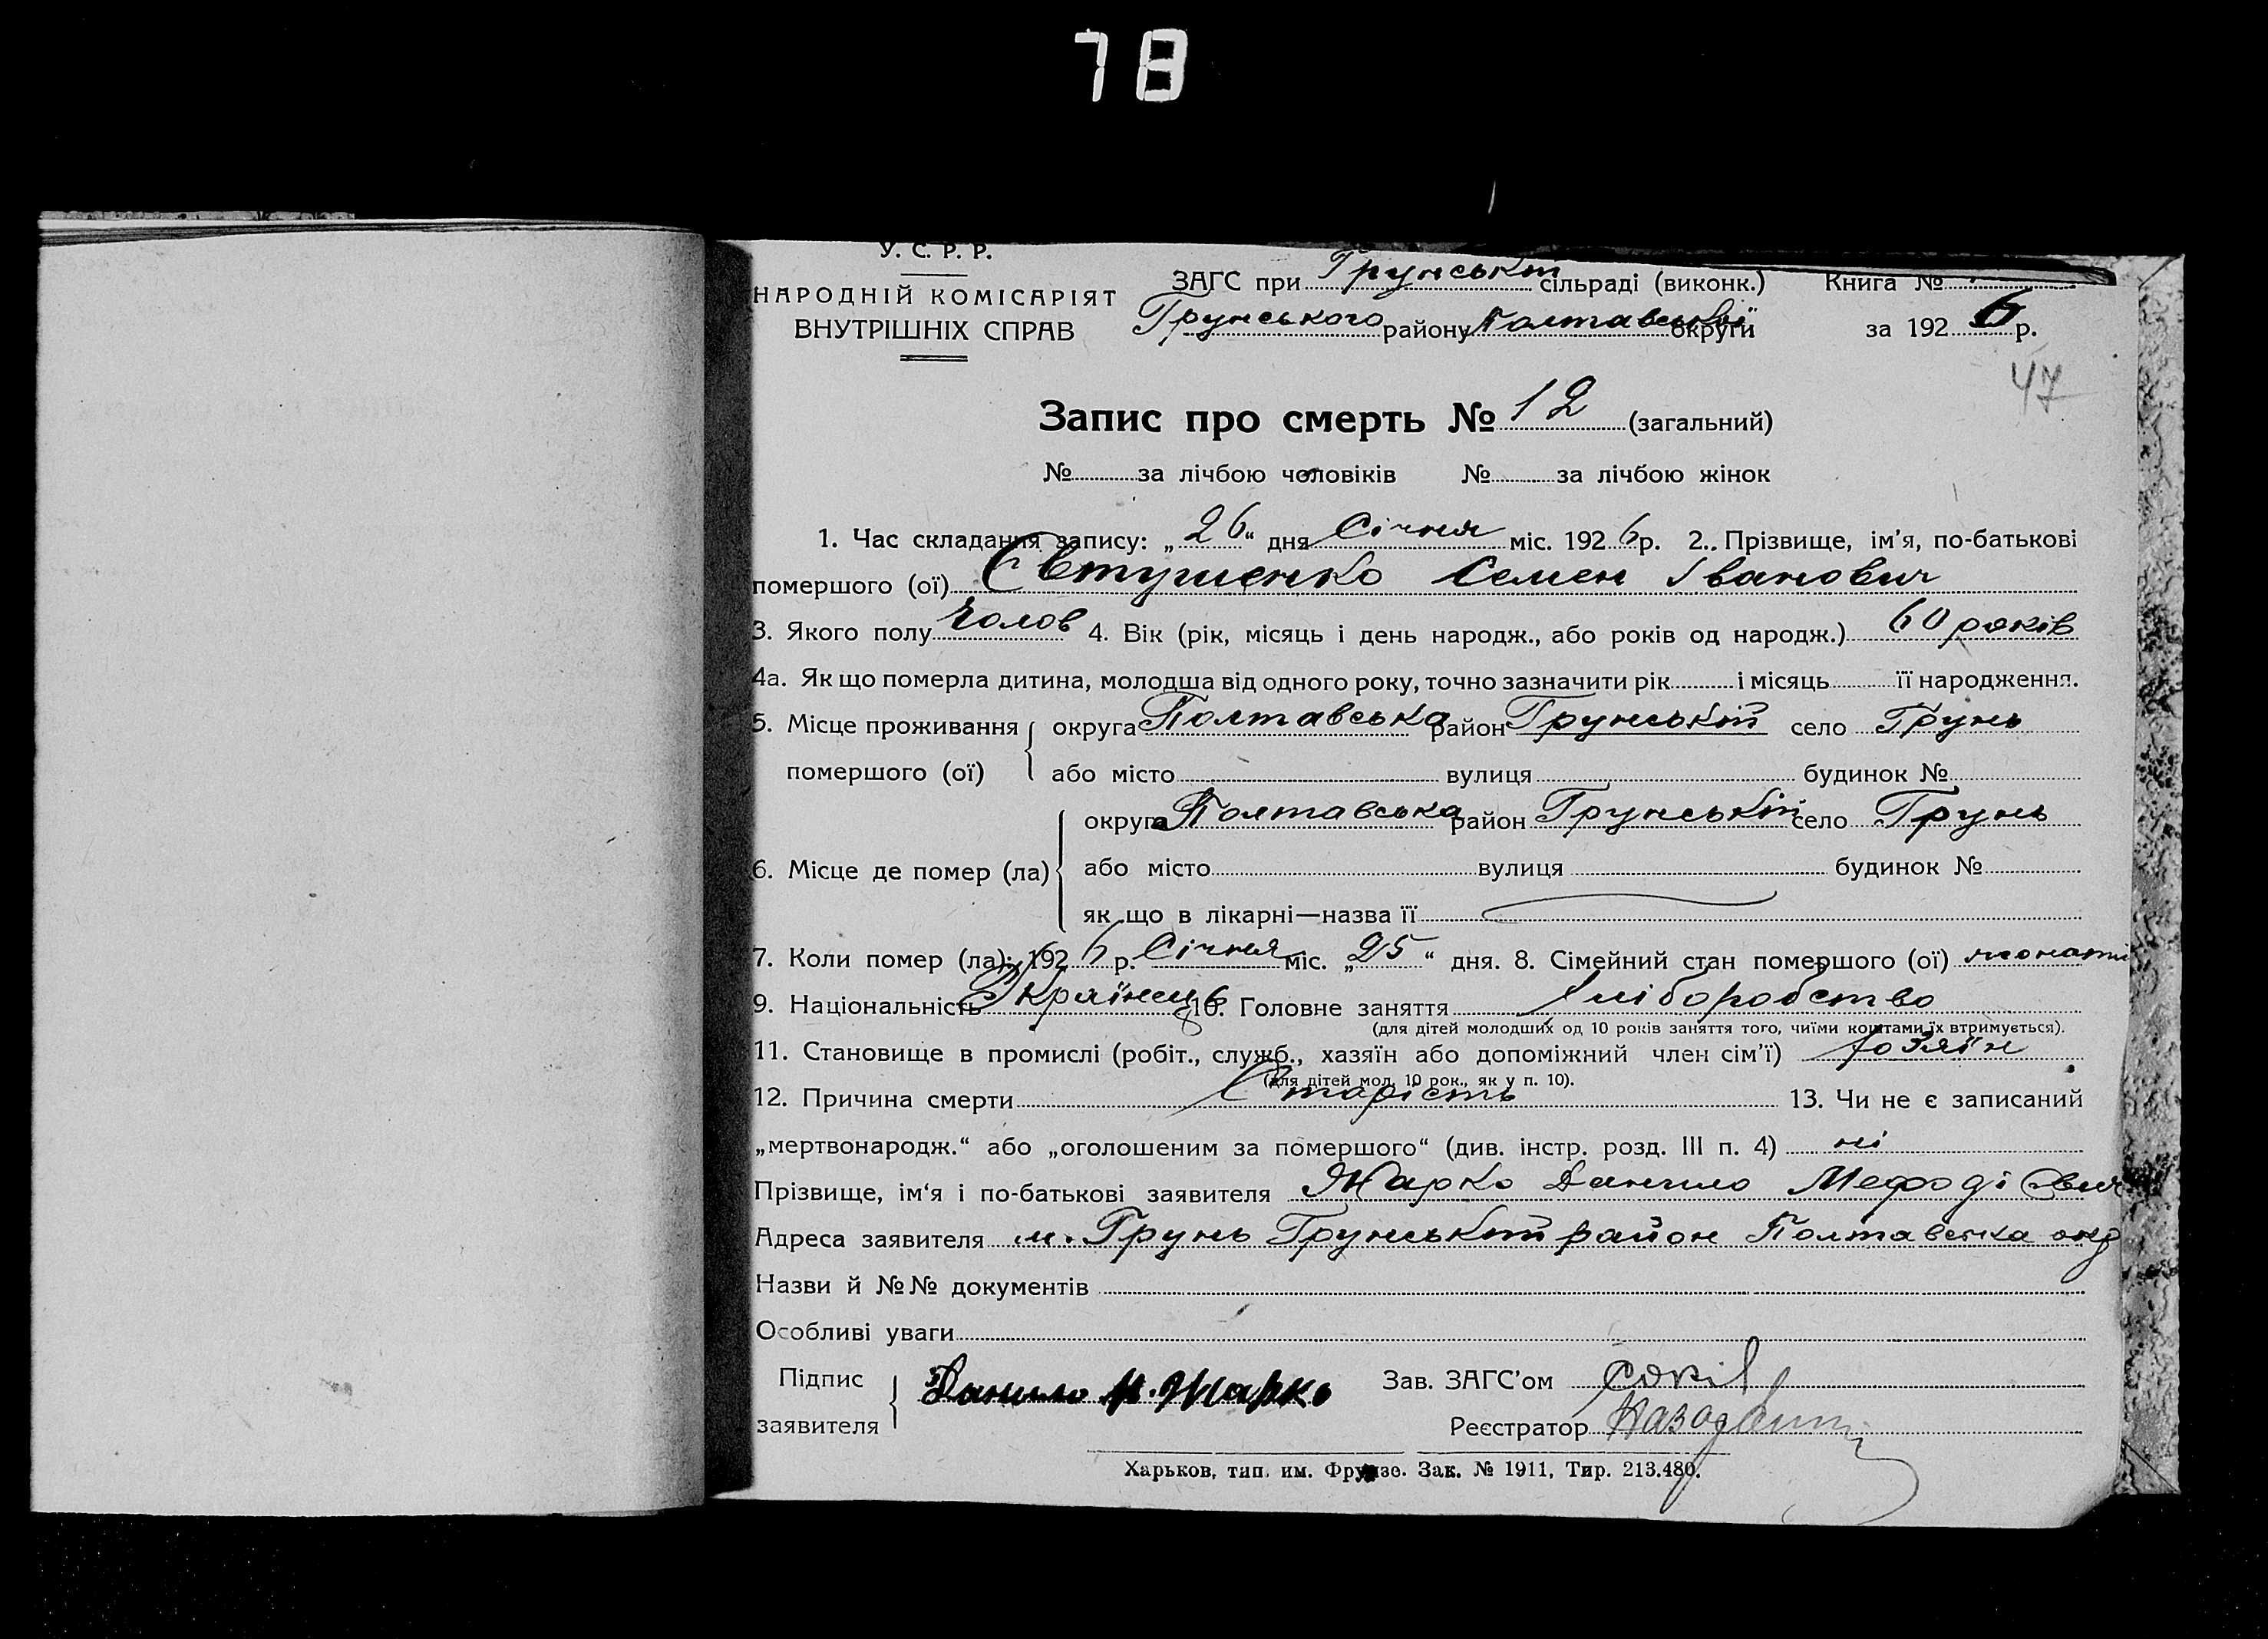 78
У. С. Р. Р.
НАРОДНІЙ КОМІСАРІЯТ
ВНУТРІШНІХ СПРАВ
ЗАГС при Грунській сільраді (виконк.) Книга №
Грунського району Полтавської округи за 1926 р.
47
Запис про смерть № 12 (загальний)
№ за лічбою чоловіків № за лічбою жінок
1. Час складання запису: „26“ дня Січня міс. 1926 р. 2.. Прізвище, ім’я, по-батькові
помершого (ої) Євтушенко Семен Іванович
3. Якого полу Чолов 4. Вік (рік, місяць і день народж., або років од народж.) 60 років
4а. Як що померла дитина, молодша від одного року, точно зазначити рік і місяць її народження.
5. Місце проживання помершого (ої) округа Полтавська район Грунській село Грунь
або місто вулиця будинок №
6. Місце де помер (ла) округа Полтавська район Грунській село Грунь
або місто вулиця будинок №
як що в лікарні—назва її
7. Коли помер (ла): 1926 р. Січня міс. „25“ дня. 8. Сімейний стан помершого (ої) жонати
9. Національність Українець 10. Головне заняття Хліборобство
(для дітей молодших од 10 років заняття того, чиїми коштами їх втримується).
11. Становище в промислі (робіт., служб., хазяїн або допоміжний член сім’ї) хозяїн
(для дітей мол. 10 рок., як у п. 10).
12. Причина смерти Старість 13. Чи не є записаний
„мертвонародж.“ або „оголошеним за помершого“ (див. інстр. розд. III п. 4) ні
Прізвище, ім‘я і по-батькові заявителя Жарко Данило Мефодієвич
Адреса заявителя м. Грунь Грунській район Полтавська окр
Назви й №№ документів
Особливі уваги
Підпис заявителя Данило М. Жарко Зав. ЗАГС’ом
Реєстратор
Харьков, тип. им. Фрунзе. Зак. № 1911, Тир. 213.480.